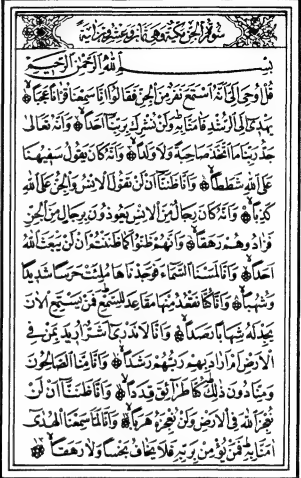 سُورَةُ الْجِنِّ مَكِّيَّةٌ وَهِيَ ثَمَانٍ وَعِشْرُونَ اٰيَةً
بِسْمِ اللّٰهِ الرَّحْمٰنِ الرَّحِيمِ
قُلْ اُوحِيَ اِلَيَّ اَنَّهُ اسْتَمَعَ نَفَرٌ مِنَ الْجِنِّ فَقَالُوا اِنَّا سَمِعْنَا قُرْاٰنًا عَجَبًا
يَهْدِي اِلَى الرُّشْدِ فَاٰمَنَّا بِهِ وَلَنْ نُشْرِكَ بِرَبِّنَا اَحَدًا وَاَنَّهُ تَعَالٰى
جَدُّ رَبِّنَا مَا اتَّخَذَ صَاحِبَةً وَلَا وَلَدًا وَاَنَّهُ كَانَ يَقُولُ سَفِيهُنَا
عَلَى اللّٰهِ شَطَطًا وَاَنَّا ظَنَنَّا اَنْ لَنْ تَقُولَ الْاِنْسُ وَالْجِنُّ عَلَى اللّٰهِ
كَذِبًا وَاَنَّهُ كَانَ رِجَالٌ مِنَ الْاِنْسِ يَعُوذُونَ بِرِجَالٍ مِنَ الْجِنِّ
فَزَادُوهُمْ رَهَقًا وَاَنَّهُمْ ظَنُّوا كَمَا ظَنَنْتُمْ اَنْ لَنْ يَبْعَثَ اللّٰهُ
اَحَدًا وَاَنَّا لَمَسْنَا السَّمَاءَ فَوَجَدْنَاهَا مُلِئَتْ حَرَسًا شَدِيدًا
وَشُهُبًا وَاَنَّا كُنَّا نَقْعُدُ مِنْهَا مَقَاعِدَ لِلسَّمْعِ فَمَنْ يَسْتَمِعِ الْاٰنَ
يَجِدْ لَهُ شِهَابًا رَصَدًا وَاَنَّا لَا نَدْرِي اَشَرٌّ اُرِيدَ بِمَنْ فِي
الْاَرْضِ اَمْ اَرَادَ بِهِمْ رَبُّهُمْ رَشَدًا وَاَنَّا مِنَّا الصَّالِحُونَ
وَمِنَّا دُونَ ذٰلِكَ كُنَّا طَرَائِقَ قِدَدًا وَاَنَّا ظَنَنَّا اَنْ لَنْ
نُعْجِزَ اللّٰهَ فِي الْاَرْضِ وَلَنْ نُعْجِزَهُ هَرَبًا وَاَنَّا لَمَّا سَمِعْنَا الْهُدٰى
اٰمَنَّا بِهِ فَمَنْ يُؤْمِنْ بِرَبِّهِ فَلَا يَخَافُ بَخْسًا وَلَا رَهَقًا